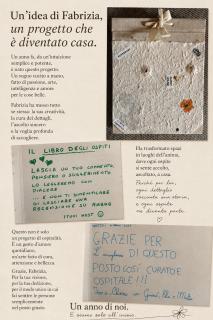 Un'idea di Fabrizia,
un progetto che
è diventato casa.
Un anno fa, da un'intuizione
semplice e potente,
è nato questo progetto.
Un sogno cucito a mano,
fatto di passione, arte,
intelligenza e amore
per le cose belle.
Fabrizia ha messo tutto
se stessa: la sua creatività,
la cura dei dettagli,
l'ascolto sincero
e la voglia profonda
di accogliere.
IL LIBRO DEGLI OSPITI
LASCIA UN TUO COMMENTO
PENSIERO O SUGGERIMENTO
LO LEGGEREMO CON
PIACERE
... E NON TI DIMENTICARE
DI LASCIARE UNA
RECENSIONE SU
I TUOI HOST
Ha trasformato spazi
in luoghi dell'anima,
dove ogni ospite
si sente accolto,
ascoltato, a casa.
Perché per lei,
ogni dettaglio
racconta una storia,
e ogni ospite
ne diventa parte.
Questo non è solo
un progetto di ospitalità.
È un gesto d'amore
quotidiano,
un'arte fatta di cura,
attenzione e bellezza.
Grazie, Fabrizia.
Per la tua visione,
per la tua dedizione,
per il modo unico in cui
fai sentire le persone
semplicemente
nel posto giusto.
GRAZIE PER
DI QUESTO
POSTO COSÌ CURATO E
OSPITALE !!!
Un anno di noi.
E siamo solo all'inizio.